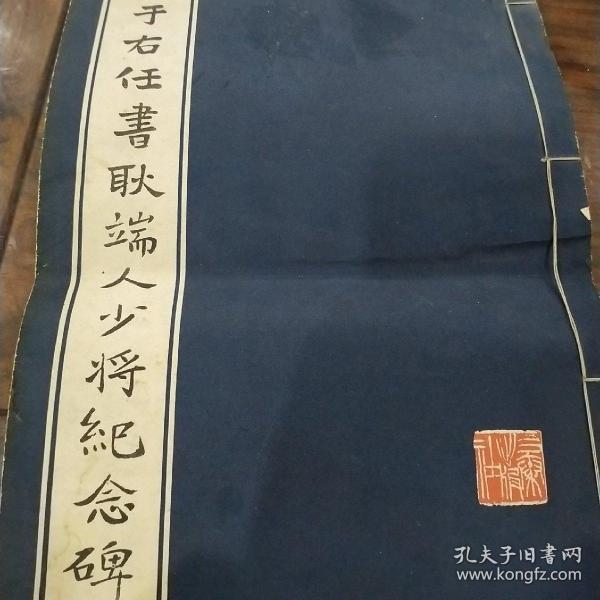 于右任書耿端人少将紀念碑
孔夫子旧書网
www.kongfz.com